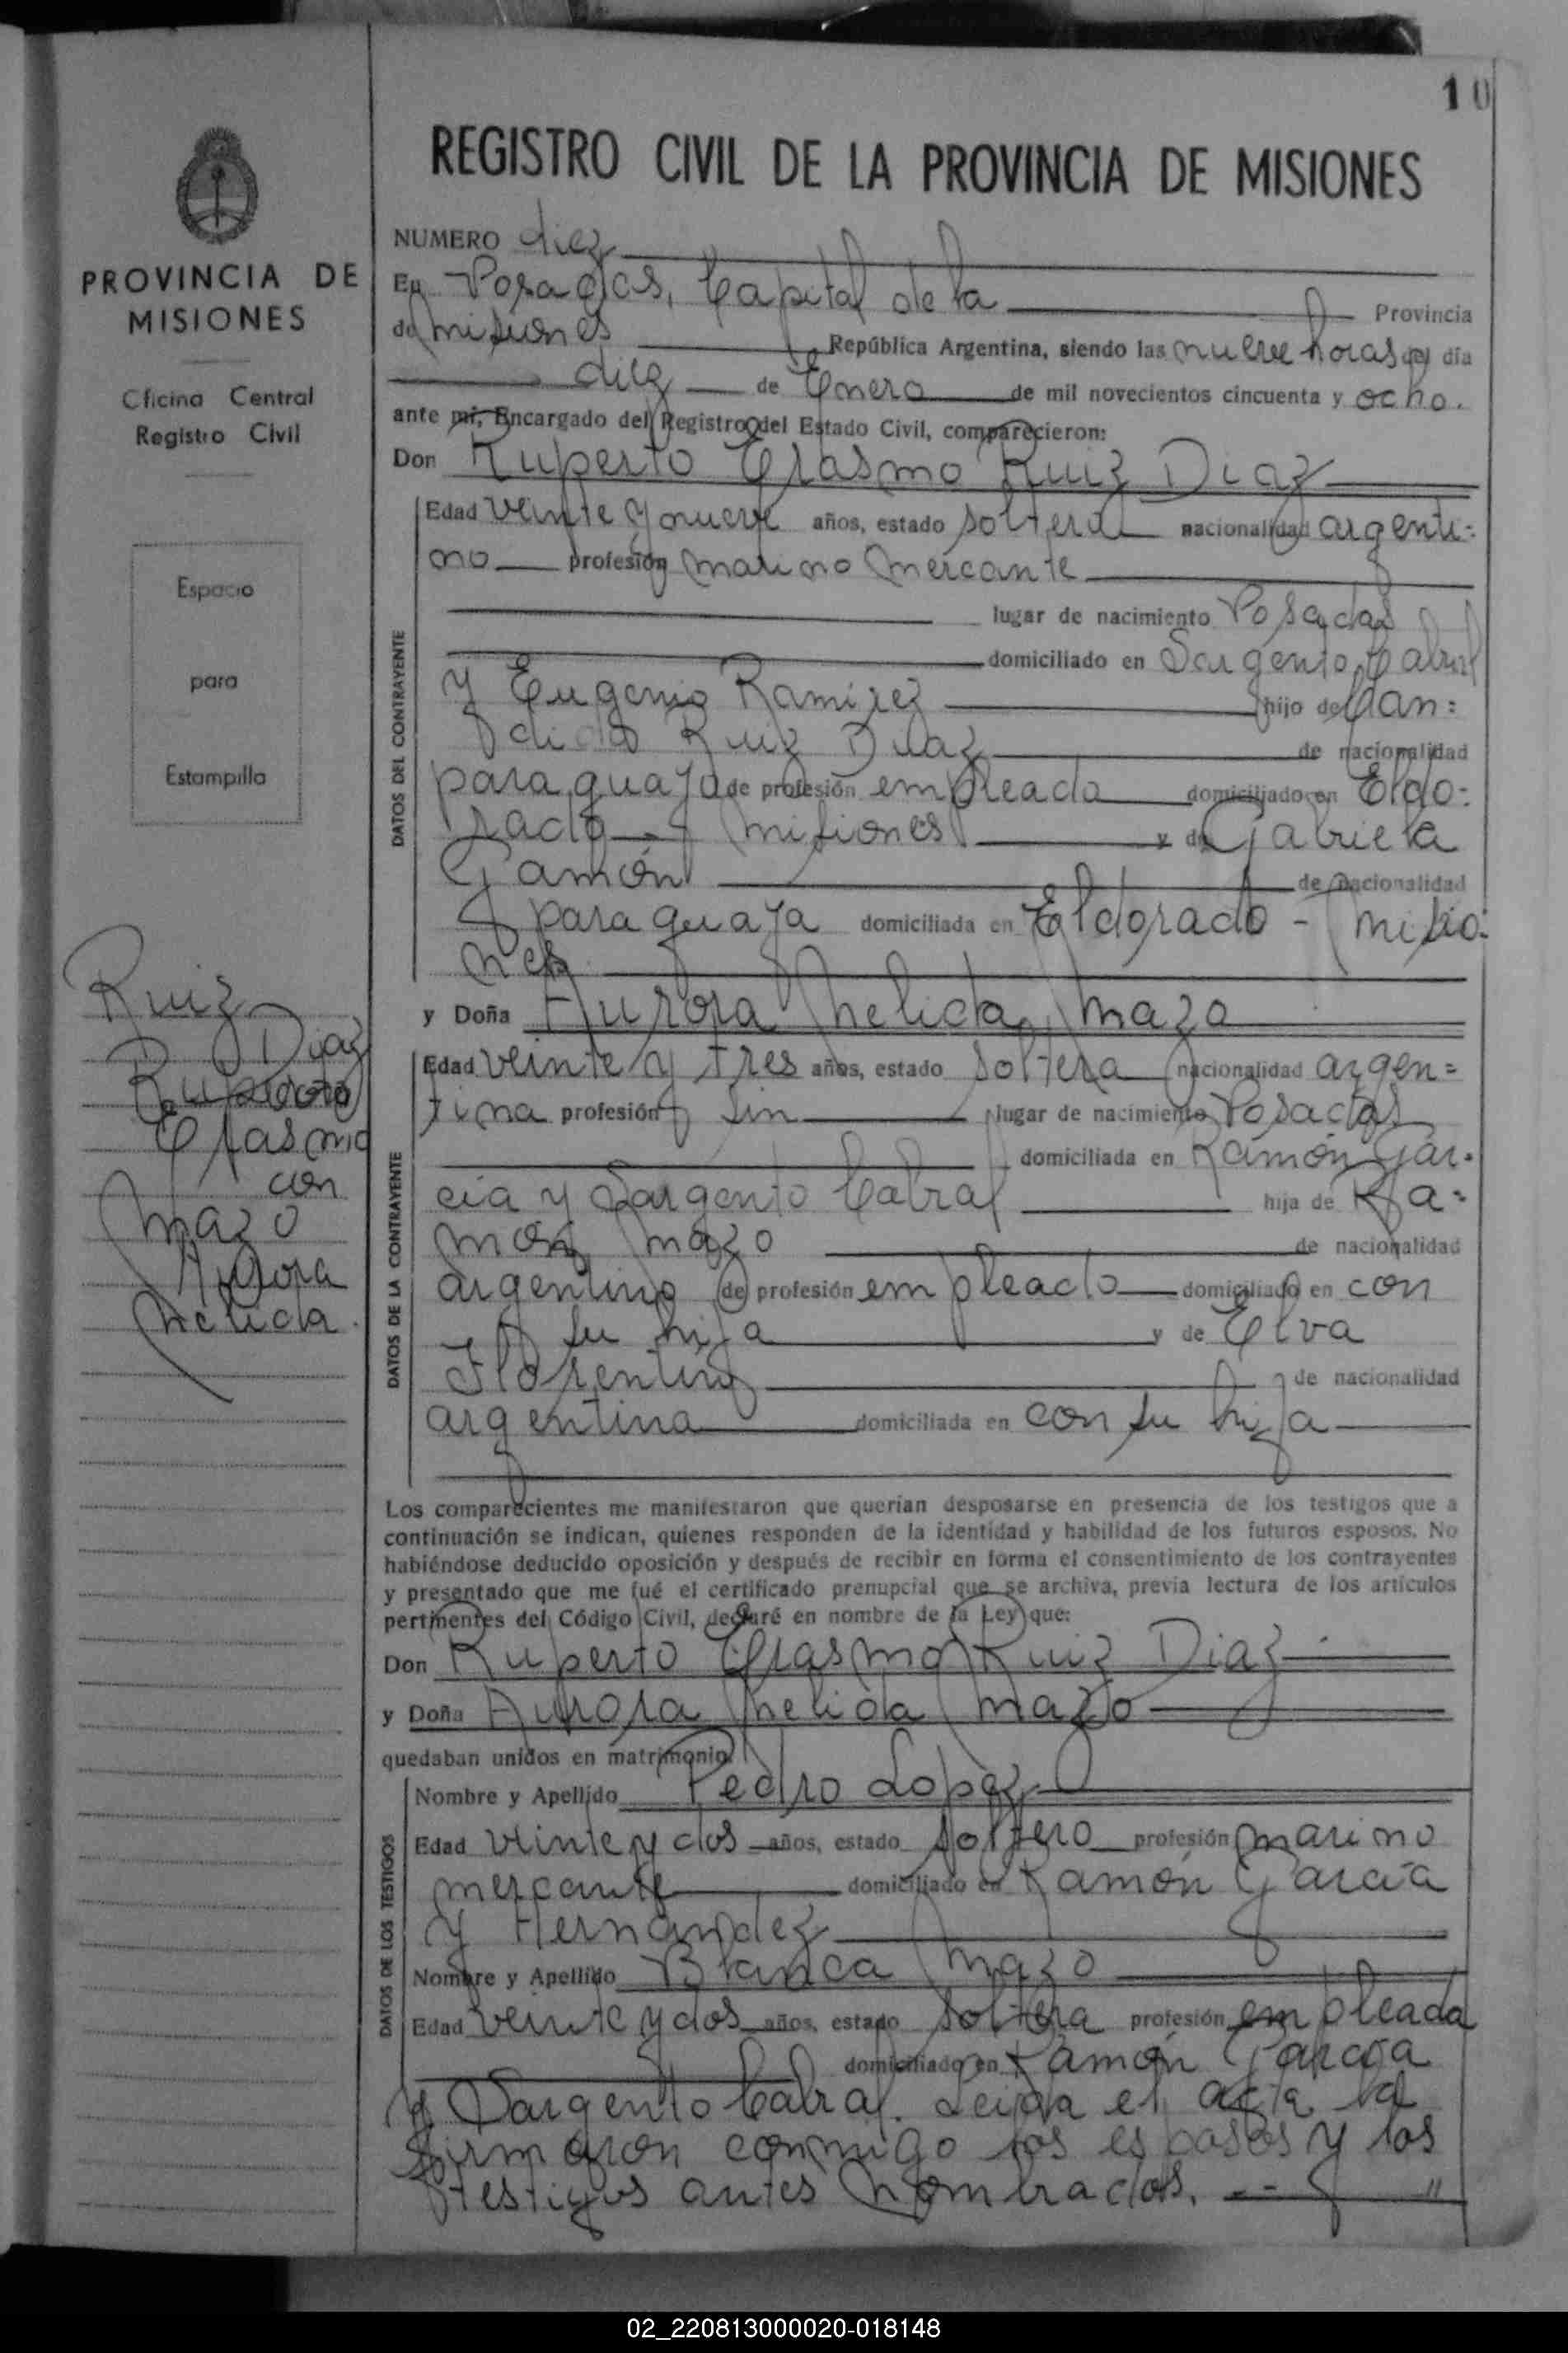 10
REGISTRO CIVIL DE LA PROVINCIA DE MISIONES
PROVINCIA DE
MISIONES
Oficina Central
Registro Civil
Espacio
para
Estampilla
Ruiz
Diaz
Ruperto
Erasmo
con
Mazo
Aurora
Nelida.
NUMERO diez
En Posadas, Capital de la Provincia
de Misiones República Argentina, siendo las nueve horas del día
diez de Enero de mil novecientos cincuenta y ocho.
ante mi, Encargado del Registro del Estado Civil, comparecieron:
Don Ruperto Erasmo Ruiz Diaz
DATOS DEL CONTRAYENTE
Edad veinte y nueve años, estado soltero nacionalidad argenti=
no profesión marino mercante
lugar de nacimiento Posadas
domiciliado en Sargento Cabral
y Eugenio Ramirez hijo de Can=
dido Ruiz Diaz de nacionalidad
paraguayo de profesión empleado domiciliado en Eldo=
rado - Misiones y de Gabriela
Gamón de nacionalidad
paraguaya domiciliada en Eldorado - Misio=
nes
y Doña Aurora Nelida Mazo
DATOS DE LA CONTRAYENTE
Edad veinte y tres años, estado soltera nacionalidad argen=
tina profesión sin lugar de nacimiento Posadas
domiciliada en Ramón Gar-
cia y Sargento Cabral hija de Ra=
món Mazo de nacionalidad
argentino de profesión empleado domiciliado en con
su hija y de Elva
Florentin de nacionalidad
argentina domiciliada en con su hija
Los comparecientes me manifestaron que querian desposarse en presencia de los testigos que a
continuación se indican, quienes responden de la identidad y habilidad de los futuros esposos. No
habiéndose deducido oposición y después de recibir en forma el consentimiento de los contrayentes
y presentado que me fué el certificado prenupcial que se archiva, previa lectura de los artículos
pertinentes del Código Civil, declaré en nombre de la Ley que:
Don Ruperto Erasmo Ruiz Diaz
y Doña Aurora Nelida Mazo
quedaban unidos en matrimonio.
DATOS DE LOS TESTIGOS
Nombre y Apellido Pedro Lopez
Edad veinte y dos años, estado soltero profesión marino
mercante domiciliado en Ramón Garcia
y Hernandez
Nombre y Apellido Blanca Mazo
Edad veinte y dos años, estado soltera profesión empleada
domiciliado en Ramón Garcia
y Sargento Cabral. Leida el acta la
firmaron conmigo los esposos y los
testigos antes nombrados. -- "
02_220813000020-018148